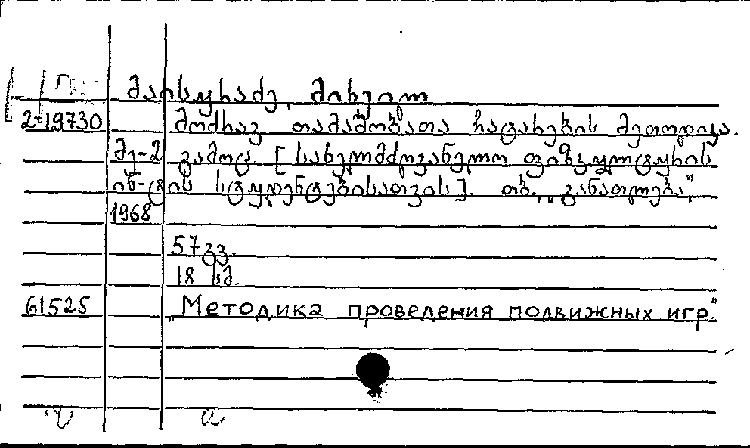 მაისურაძე, მიხეილ
2-19730 მოძრავ თამაშობათა ჩატარების მეთოდიკა.
მე-2 გამოც. [სახელმძღვანელო ფიზკულტურის
ინ-ტის სტუდენტებისათვის]. თბ., „განათლება“,
1968
57 გვ.
18 სმ.
61525 „Методика проведения подвижных игр“